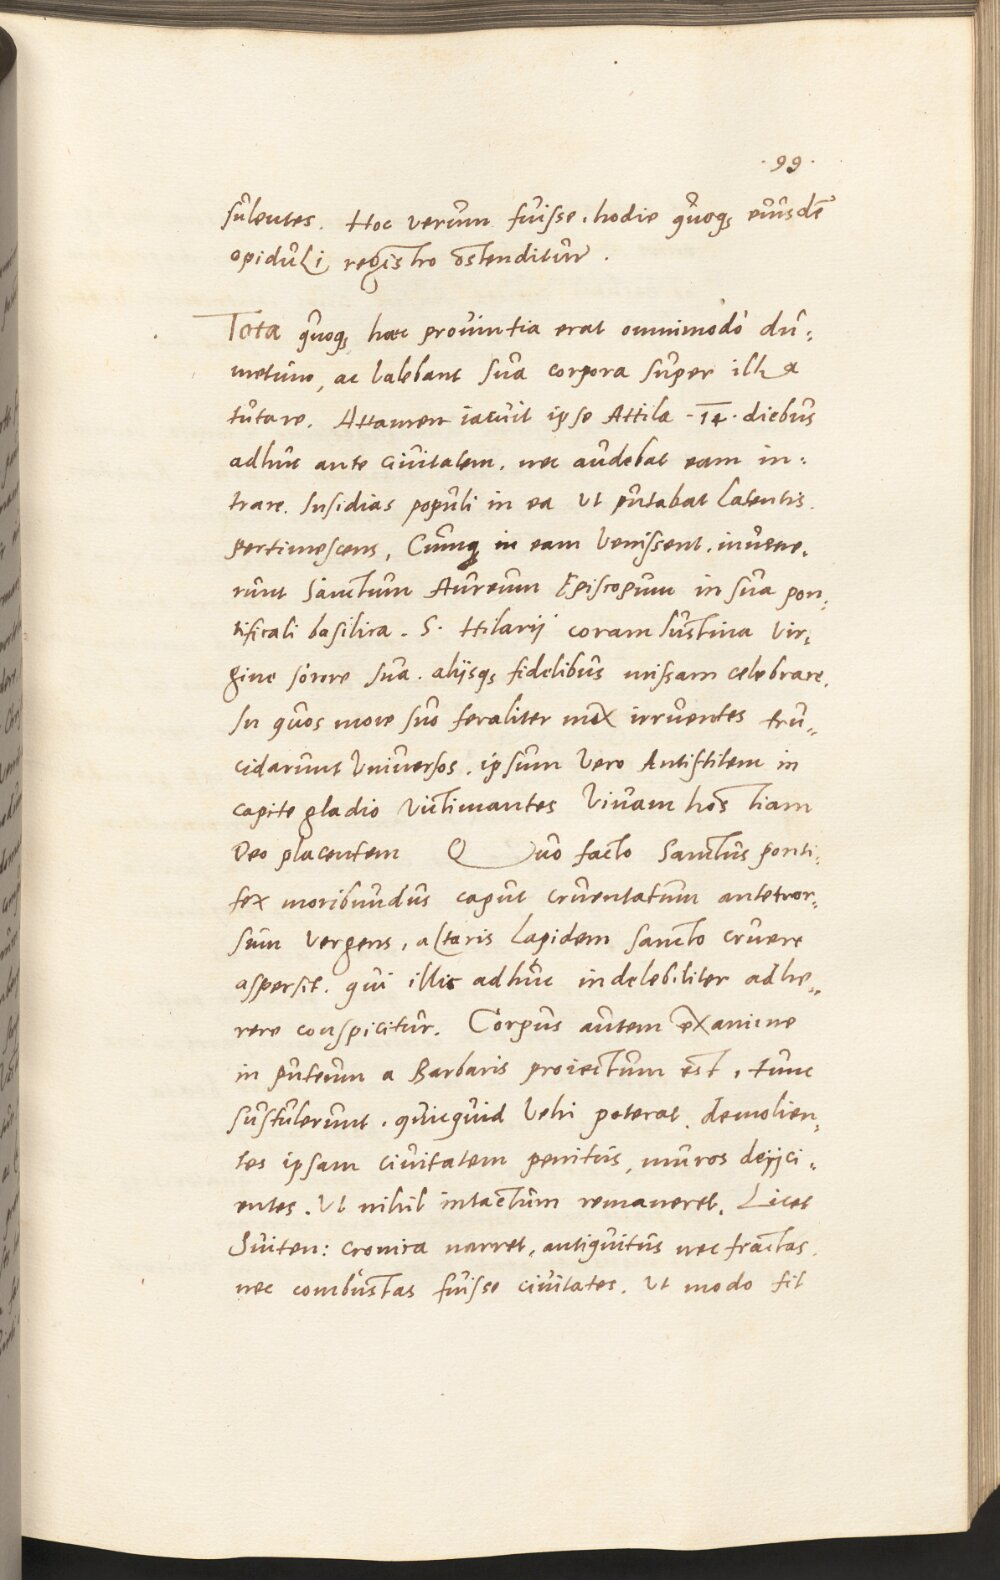 ·99·
sulentes. Hoc verum fuisse. hodie quoq; eiusdē
opiduli registro ostenditur.
Tota quoq; haec prouintia erat omnimodo du:
metum, ac valebant sua corpora super illa
tutare. Attamen iacuit ipse Attila ·14· diebus
adhuc ante ciuitatem. nec audebat eam in:
trare. Insidias populi in ea ut putabat latentis.
pertimescens, Cumq; in eam venissent. inuene:
runt Sanctum Aureum Episcopum in sua pon:
tificali basilica. S. Hilarij coram Iustina vir:
gine sorore sua. alijsq; fidelibus missam celebrare.
In quos more suo feraliter mox irruentes tru„
cidarunt Vniuersos. ipsum vero Antistitem in
capite gladio victimantes viuam hostiam
Deo placentem Quo facto Sanctus ponti:
fex moribundus caput cruentatum antetror:
sum vergens, altaris lapidem sancto cruore
aspersit. qui illic adhuc indelebiliter adhe„
rere conspicitur. Corpus autem exanime
in puteum a Barbaris proiectum est, tunc
sustulerunt. quicquid vehi poterat. demolien:
tes ipsam ciuitatem penitus, muros deijci:
entes. Vt nihil intactum remaneret. Licet
Suiten: cronica narret, antiquitus nec fractas.
nec combustas fuisse ciuitates. ut modo fit